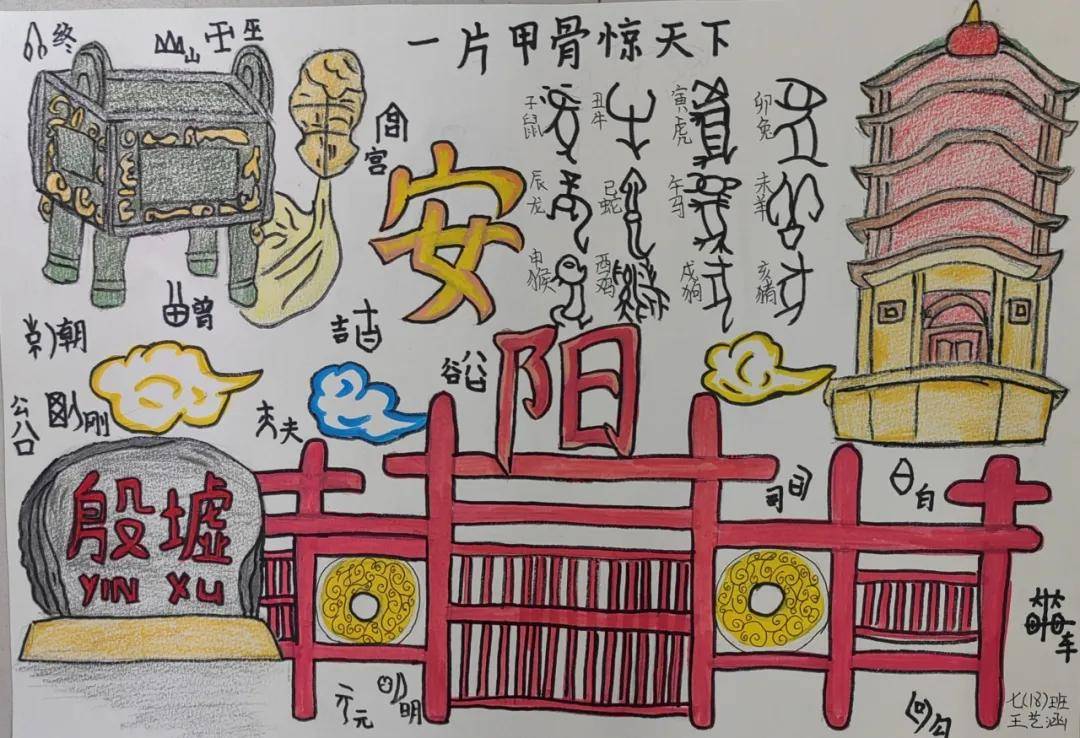 一片甲骨惊天下
终
山
壬
坐
宫
子鼠
丑牛
寅虎
卯兔
辰龙
巳蛇
午马
未羊
申猴
酉鸡
戌狗
亥猪
安
阳
曾
朝
吉
谷
公
刚
夫
殷墟
YIN XU
司
白
车
元
明
勾
七(18)班
王艺涵